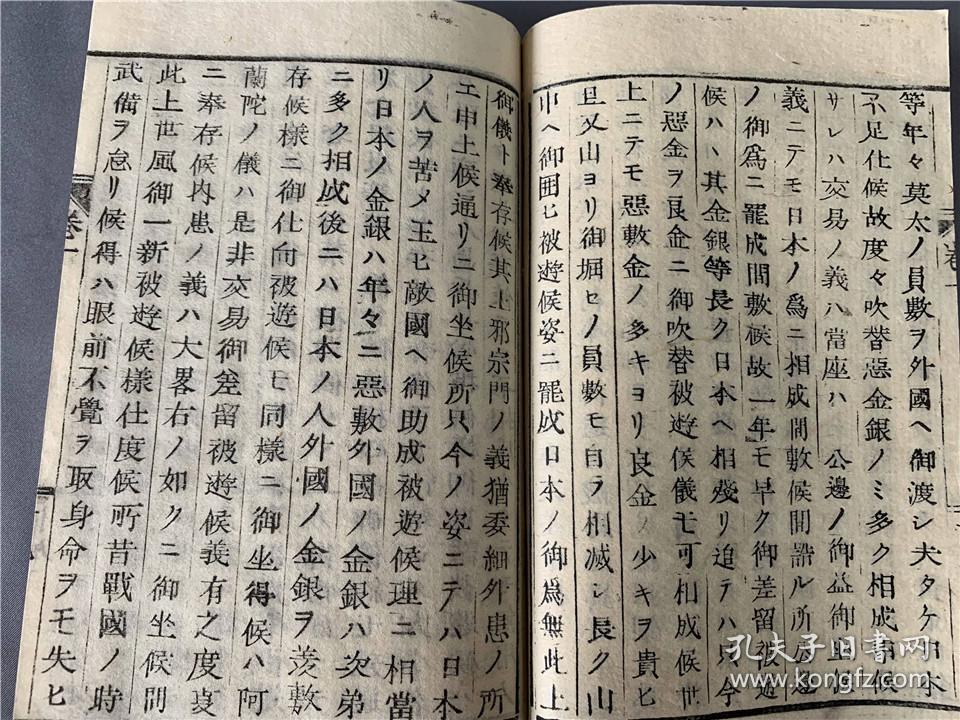 等年々莫太ノ員數ヲ外國ヘ御渡シ夫タケ日本
不足仕候故度々吹替惡金銀ノミ多ク相成申候
サレハ交易ノ義ハ當座ハ公邊ノ御益御
義ニテモ日本ノ爲ニ相成間敷候間詰ル所公邊
ノ御爲ニ罷成間敷候故一年モ早ク御差留被遊
候ハヽ其金銀等長ク日本ヘ相殘リ追テハ只今
ノ惡金ヲ良金ニ御吹替被遊候儀モ可相成候世
上ニテモ惡敷金ノ多キヨリ良金ノ少キヲ貴ヒ
且又山ヨリ御堀セノ員數モ自ラ相减シ長ク山
中ヘ御囲ヒ被遊候姿ニ罷成日本ノ御爲無此上
御儀ト奉存候其上邪宗門ノ義猶委細外患ノ所
エ申上候通リニ御坐候所只今ノ姿ニテハ日本
ノ人ヲ苦メ玉ヒ敵國ヘ御助成被遊候理ニ相當
リ日本ノ金銀ハ年々ニ惡敷外國ノ金銀ハ次弟
ニ多ク相成後ニハ日本ノ人外國ノ金銀ヲ羨敷
存候樣ニ御仕向被遊候モ同樣ニ御坐得候ハ阿
蘭陀ノ儀ハ是非交易御差留被遊候義有之度
ニ奉存候内患ノ義ハ大畧右ノ如クニ御坐候間
此上世風御一新被遊候樣仕度候所昔戰國ノ時
武備ヲ怠リ候得ハ眼前不覺ヲ取身命ヲモ失ヒ
卷一
孔夫子旧书网
www.kongfz.com